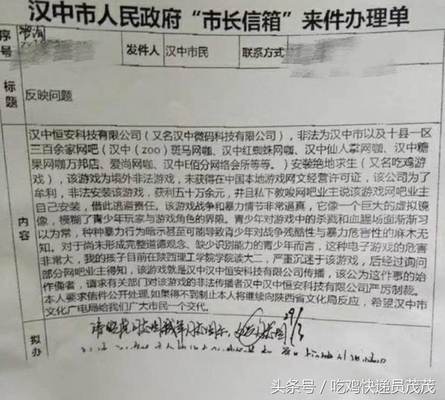 汉中市人民政府“市长信箱”来件办理单
序号
发件人
汉中市民
联系方式
标题
反映问题
内容
汉中恒安科技有限公司（又名汉中微码科技有限公司），非法为汉中市以及十县一区
三百余家网吧（汉中（zoo）斑马网咖、汉中红蜘蛛网咖、汉中仙人掌网咖、汉中糖
果网咖万邦店、爱尚网咖、汉中E佰分网络会所等等。）安装绝地求生（又名吃鸡游
戏），该游戏为境外非法游戏，未获得在中国本地游戏网文经营许可证，该公司为了
牟利，非法安装该游戏，获利五十万余元，并且私下教唆网吧业主说该游戏网吧业主
自己安装，借此逃避责任。该游戏战争和暴力情节非常逼真，它像一个巨大的虚拟镜
像，模糊了青少年玩家与游戏角色的界限。青少年对游戏中的杀戮和血腥场面渐渐习
以为常，种种暴力行为暗示甚至可能导致青少年对战争残酷性与暴力危害性的麻木无
知。对于尚未形成完整道德观念、缺少识别能力的青少年而言，这种电子游戏的危害
非常大，我的孩子目前在陕西理工学院学院读大二，严重沉迷于该游戏，后经过询问
部分网吧业主得知，该游戏就是汉中汉中恒安科技有限公司传播，该公为这件事的始
作俑者，请求有关部门对该游戏的非法传播者汉中汉中恒安科技有限公司严厉制裁。
本人要求信件公开处理，如果得不到制止本人将继续向陕西省文化局反应，希望汉中市
文化广电局给我们广大市民一个交代。
拟办
头条号／吃鸡快递员茂茂